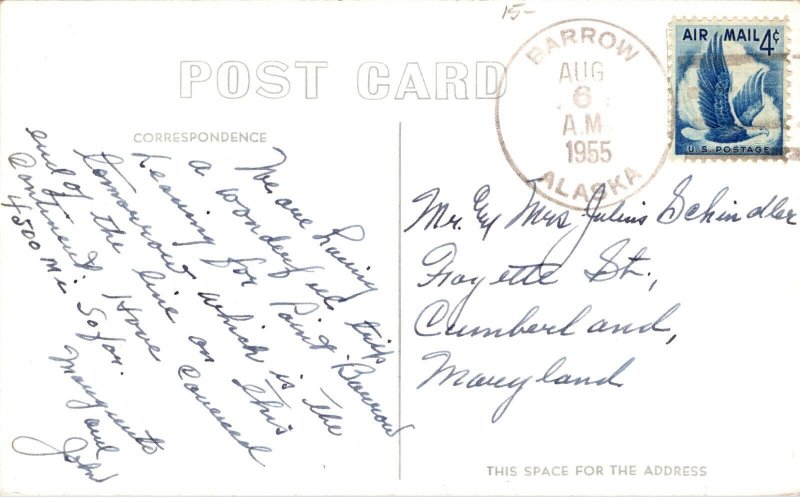 15-
POST CARD
CORRESPONDENCE
BARROW
AUG
6
A.M.
1955
ALASKA
AIR MAIL 4¢
U.S. POSTAGE
We are having
a wonderful trip
Leaving for Point Barrow
tomorrow which is the
end of the line on this
Continent. Have covered
4500 mi so far.
Marguerite
and
John
Mr. & Mrs Julius Schindler
Fayette St.,
Cumberland,
Maryland
THIS SPACE FOR THE ADDRESS